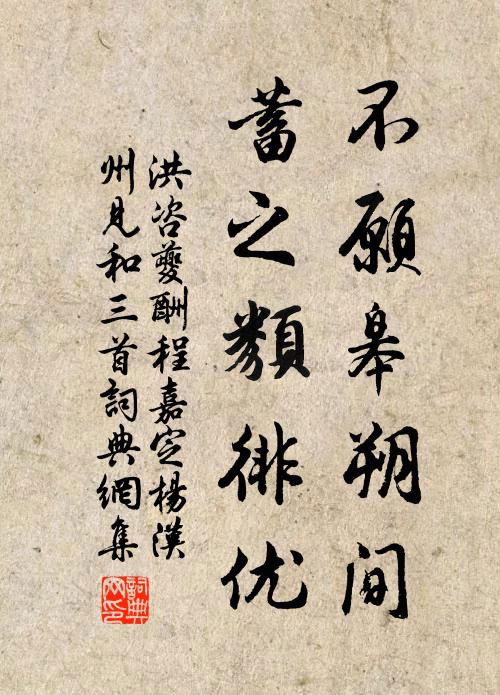 不願皋朔間
蓄之類徘优
洪咨夔酬程嘉定楊漢
州見和三首詞典網集
詞典
网印